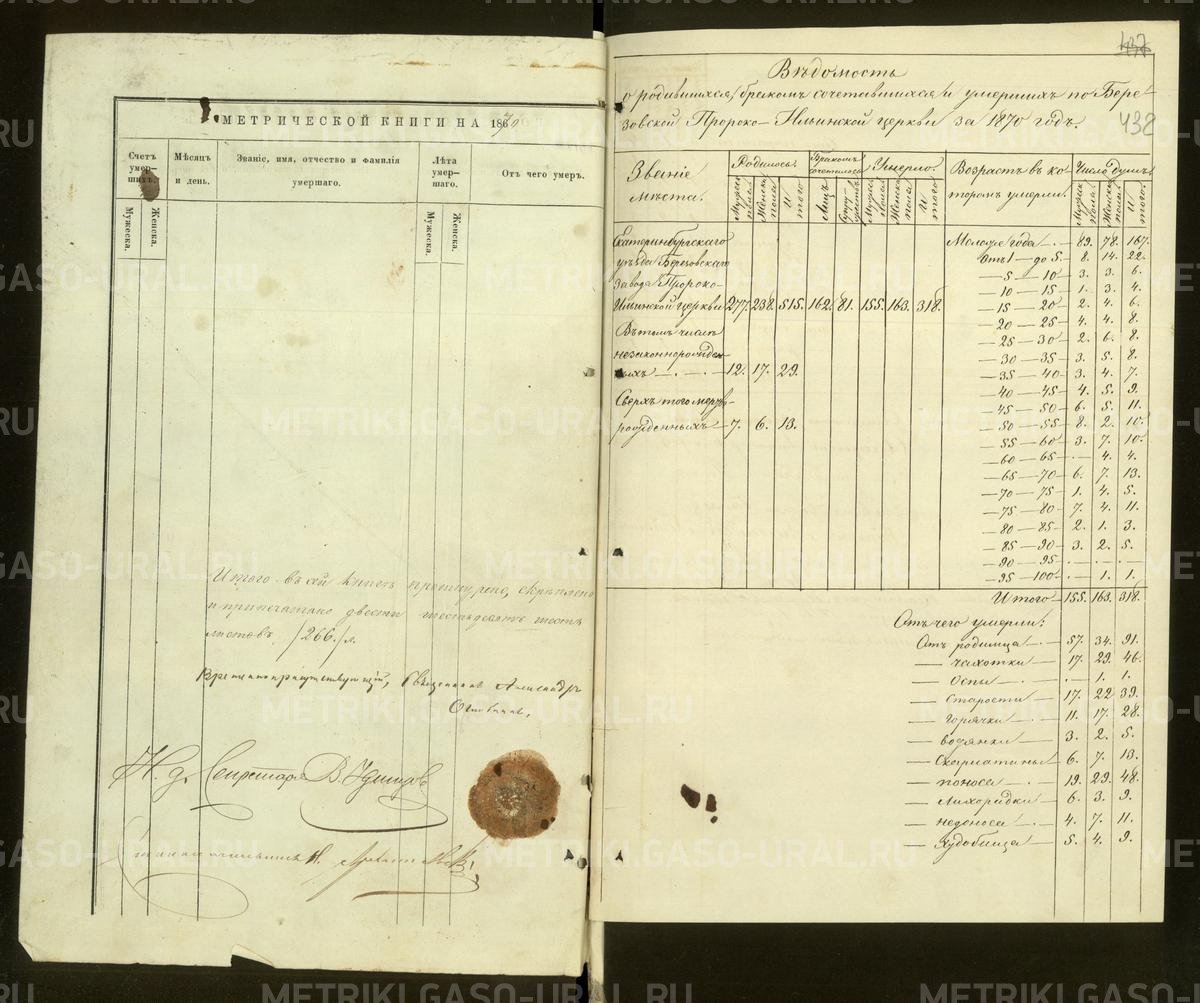 МЕТРИЧЕСКОЙ КНИГИ НА 1870
Счетъ умер-шихъ.
Мѣсяцъ и день.
Званіе, имя, отчество и фамилія умершаго.
Лѣта умер-шаго.
Отъ чего умеръ.
Мужеска.
Женска.
Мужеска.
Женска.
Итого въ сей книгѣ прошнуровано, скрѣплено
и припечатано двести шестьдесятъ шесть
листовъ /266./ л.
Священникъ Александръ
Н. д. Секретаря В.
437
438
Вѣдомость
о родившихся, бракомъ сочетавшихся и умершихъ по Бере-
зовской Пророко-Ильинской церкви за 1870 годъ.
Званіе мѣста.
Родилось.
Бракомъ сочеталось
Умерло.
Возрастъ въ ко-торомъ умерли.
Число душъ.
Мужеска пола
Женска пола
И того
Лицъ
Мужеска пола
Женска пола
И того
Мужеска пола.
Женска пола.
И того
Екатеринбургскаго
уѣзда Березовскаго
завода Пророко-
Ильинской церкви 277. 238. 515. 162. 81. 155. 163. 318.
Въ томъ числѣ
незаконнорожден-
ныхъ — . — . — 12. 17. 29.
Сверхъ того мертво-
рожденныхъ 7. 6. 13.
Моложе года — . — 89. 78. 167.
Отъ 1 — до 5. — 8. 14. 22.
— 5 — 10 — 3. 3. 6.
— 10 — 15 — 1. 3. 4.
— 15 — 20 — 2. 4. 6.
— 20 — 25 — 4. 4. 8.
— 25 — 30 — 2. 6. 8.
— 30 — 35 — 3. 5. 8.
— 35 — 40 — 3. 4. 7.
— 40 — 45 — 4. 5. 9.
— 45 — 50 — 6. 5. 11.
— 50 — 55 — 8. 2. 10.
— 55 — 60 — 3. 7. 10.
— 60 — 65 — . — 4. 4.
— 65 — 70 — 6. 7. 13.
— 70 — 75 — 1. 4. 5.
— 75 — 80 — 7. 4. 11.
— 80 — 85 — 2. 1. 3.
— 85 — 90 — 3. 2. 5.
— 90 — 95 — . — . — .
— 95 — 100 — . 1. 1.
Итого — 155. 163. 318.
Отъ чего умерли:
Отъ родимца — . — 57. 34. 91.
— чахотки — 17. 29. 46.
— Оспы — . — . 1. 1.
— Старости — 17. 22. 39.
— Горячки — 11. 17. 28.
— водянки — 3. 2. 5.
— Скарлатины — 6. 7. 13.
— поноса — 19. 29. 48.
— Лихорадки — 6. 3. 9.
— недоноса — . — 4. 7. 11.
— Худобища — 5. 4. 9.
METRIKI.GASO-URAL.RU